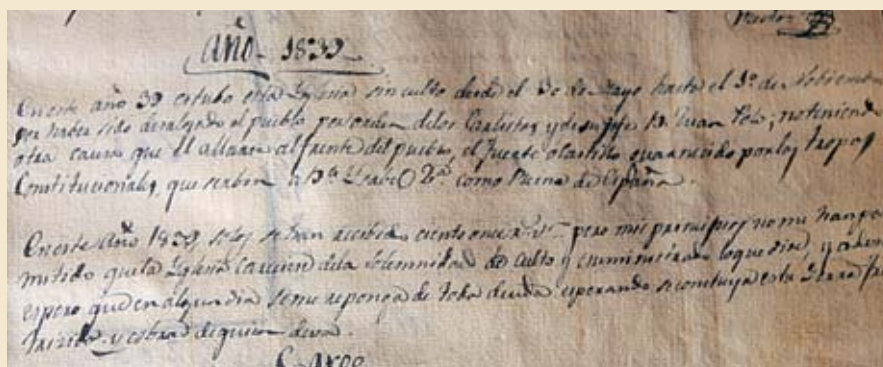 Año 1839
En este año 39 estubo esta Yglesia sin culto desde el 30 de Mayo hasta el 3º de Nobiembre
por haber sido desalojado el pueblo por orden de los Carlistas y de su jefe D. Juan Polo; no teniendo
otra causa que el allarse al frente del pueblo, el fuerte o Castillo guarnecido por las tropas
Constitucionales, que serbian a Dª Ysabel 2ª como Reina de España.
En este Año 1839, solos se han recibido ciento once r.s v.n pero mis principios no me han per
mitido que la Yglesia careciese de la solemnidad de culto y
espero que en algun dia se me reponga de toda deuda esperando se concluya esta Guerra fra
tricida y cobrar de quien deva.